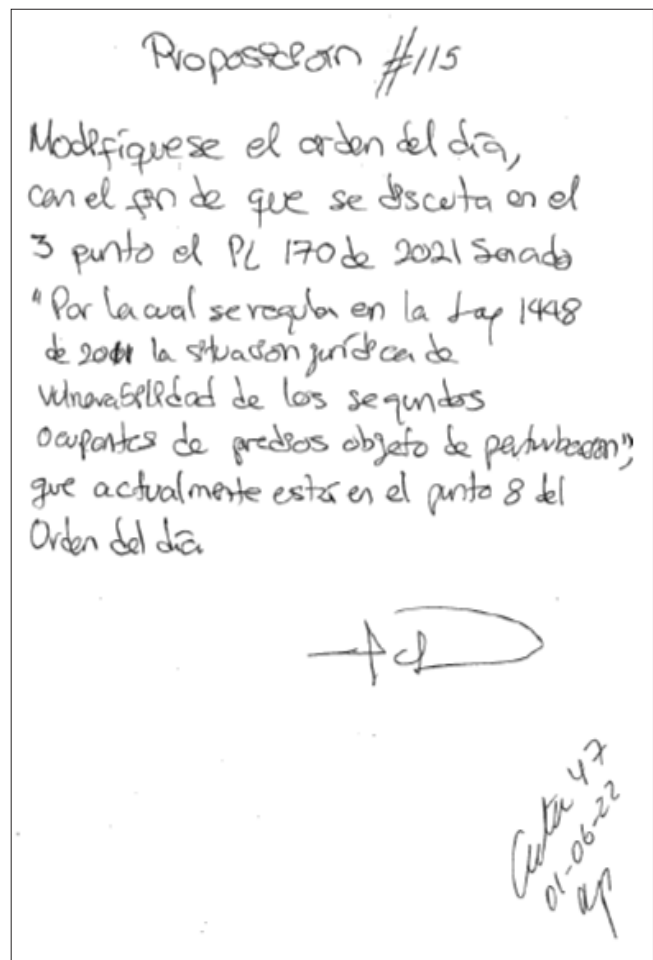 Proposición #115
Modifíquese el orden del día,
con el fin de que se discuta en el
3 punto el PL 170 de 2021 Senado
"Por la cual se regula en la Ley 1448
de 2011 la situación jurídica de
vulnerabilidad de los segundos
ocupantes de predios objeto de perturbacion",
que actualmente está en el punto 8 del
Orden del día
Acta 47
01-06-22